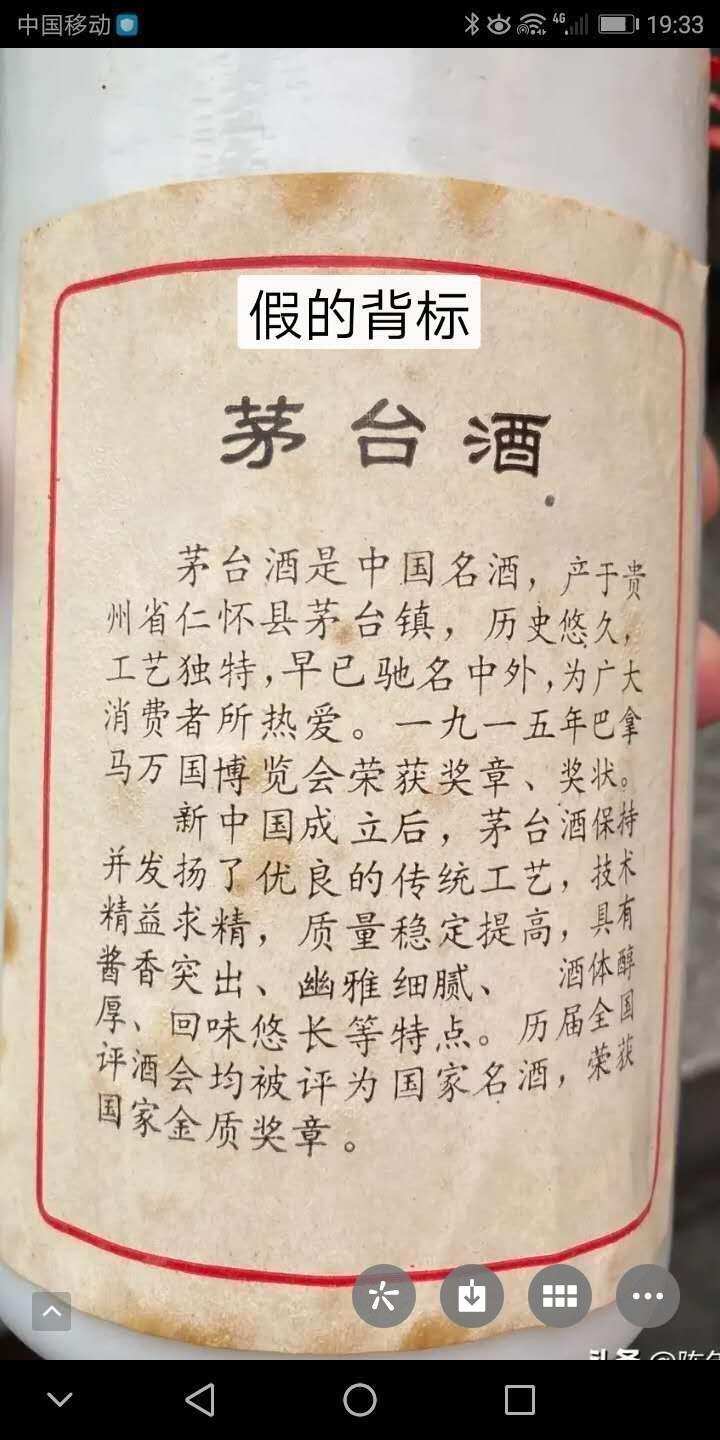 中国移动
4G
19:33
假的背标
茅台酒
茅台酒是中国名酒，产于贵
州省仁怀县茅台镇，历史悠久，
工艺独特，早已驰名中外，为广大
消费者所热爱。一九一五年巴拿
马万国博览会荣获奖章、奖状。
新中国成立后，茅台酒保持
并发扬了优良的传统工艺，技术
精益求精，质量稳定提高，具有
酱香突出、幽雅细腻、 酒体醇
厚、回味悠长等特点。历届全国
评酒会均被评为国家名酒，荣获
国家金质奖章。